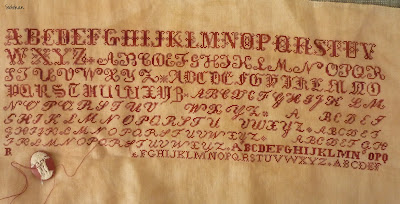 Sabihan
ABCDEFGHIJKLMNOPQRSTUV
WXYZ ABCDEFGHIJKLMNOPQR
STUVWXYZ ABCDEFGHIJKLMNO
PQRSTUVWXYZ ABCDEFGHIJKLM
NOPQRSTUV WXYZ A BCDEF
GHIJKLMNOPQRSTUV WXYZ ABCDEF
GHIJKLMNOPQRSTUVWXYZ ABCDEFGH
IJKLMNOPQRSTUVWXYZ ABCDEFGHIJKLMN OPQ
R FGHIJKLMNOPQRSTUVWXYZ ABCDEF